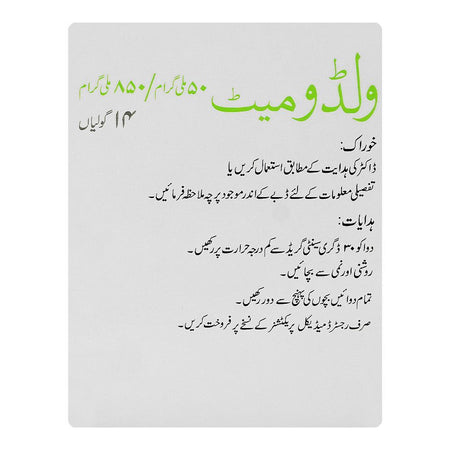 ولڈومیٹ ۵۰ ملی گرام/۸۵۰ ملی گرام
۱۴ گولیاں
خوراک:
ڈاکٹر کی ہدایت کے مطابق استعمال کریں یا
تفصیلی معلومات کے لئے ڈبے کے اندر موجود پرچہ ملاحظہ فرمائیں۔
ہدایات:
دوا کو ۳۰ ڈگری سینٹی گریڈ سے کم درجہ حرارت پر رکھیں۔
روشنی اور نمی سے بچائیں۔
تمام دوائیں بچوں کی پہنچ سے دور رکھیں۔
صرف رجسٹرڈ میڈیکل پریکٹشنر کے نسخے پر فروخت کریں۔